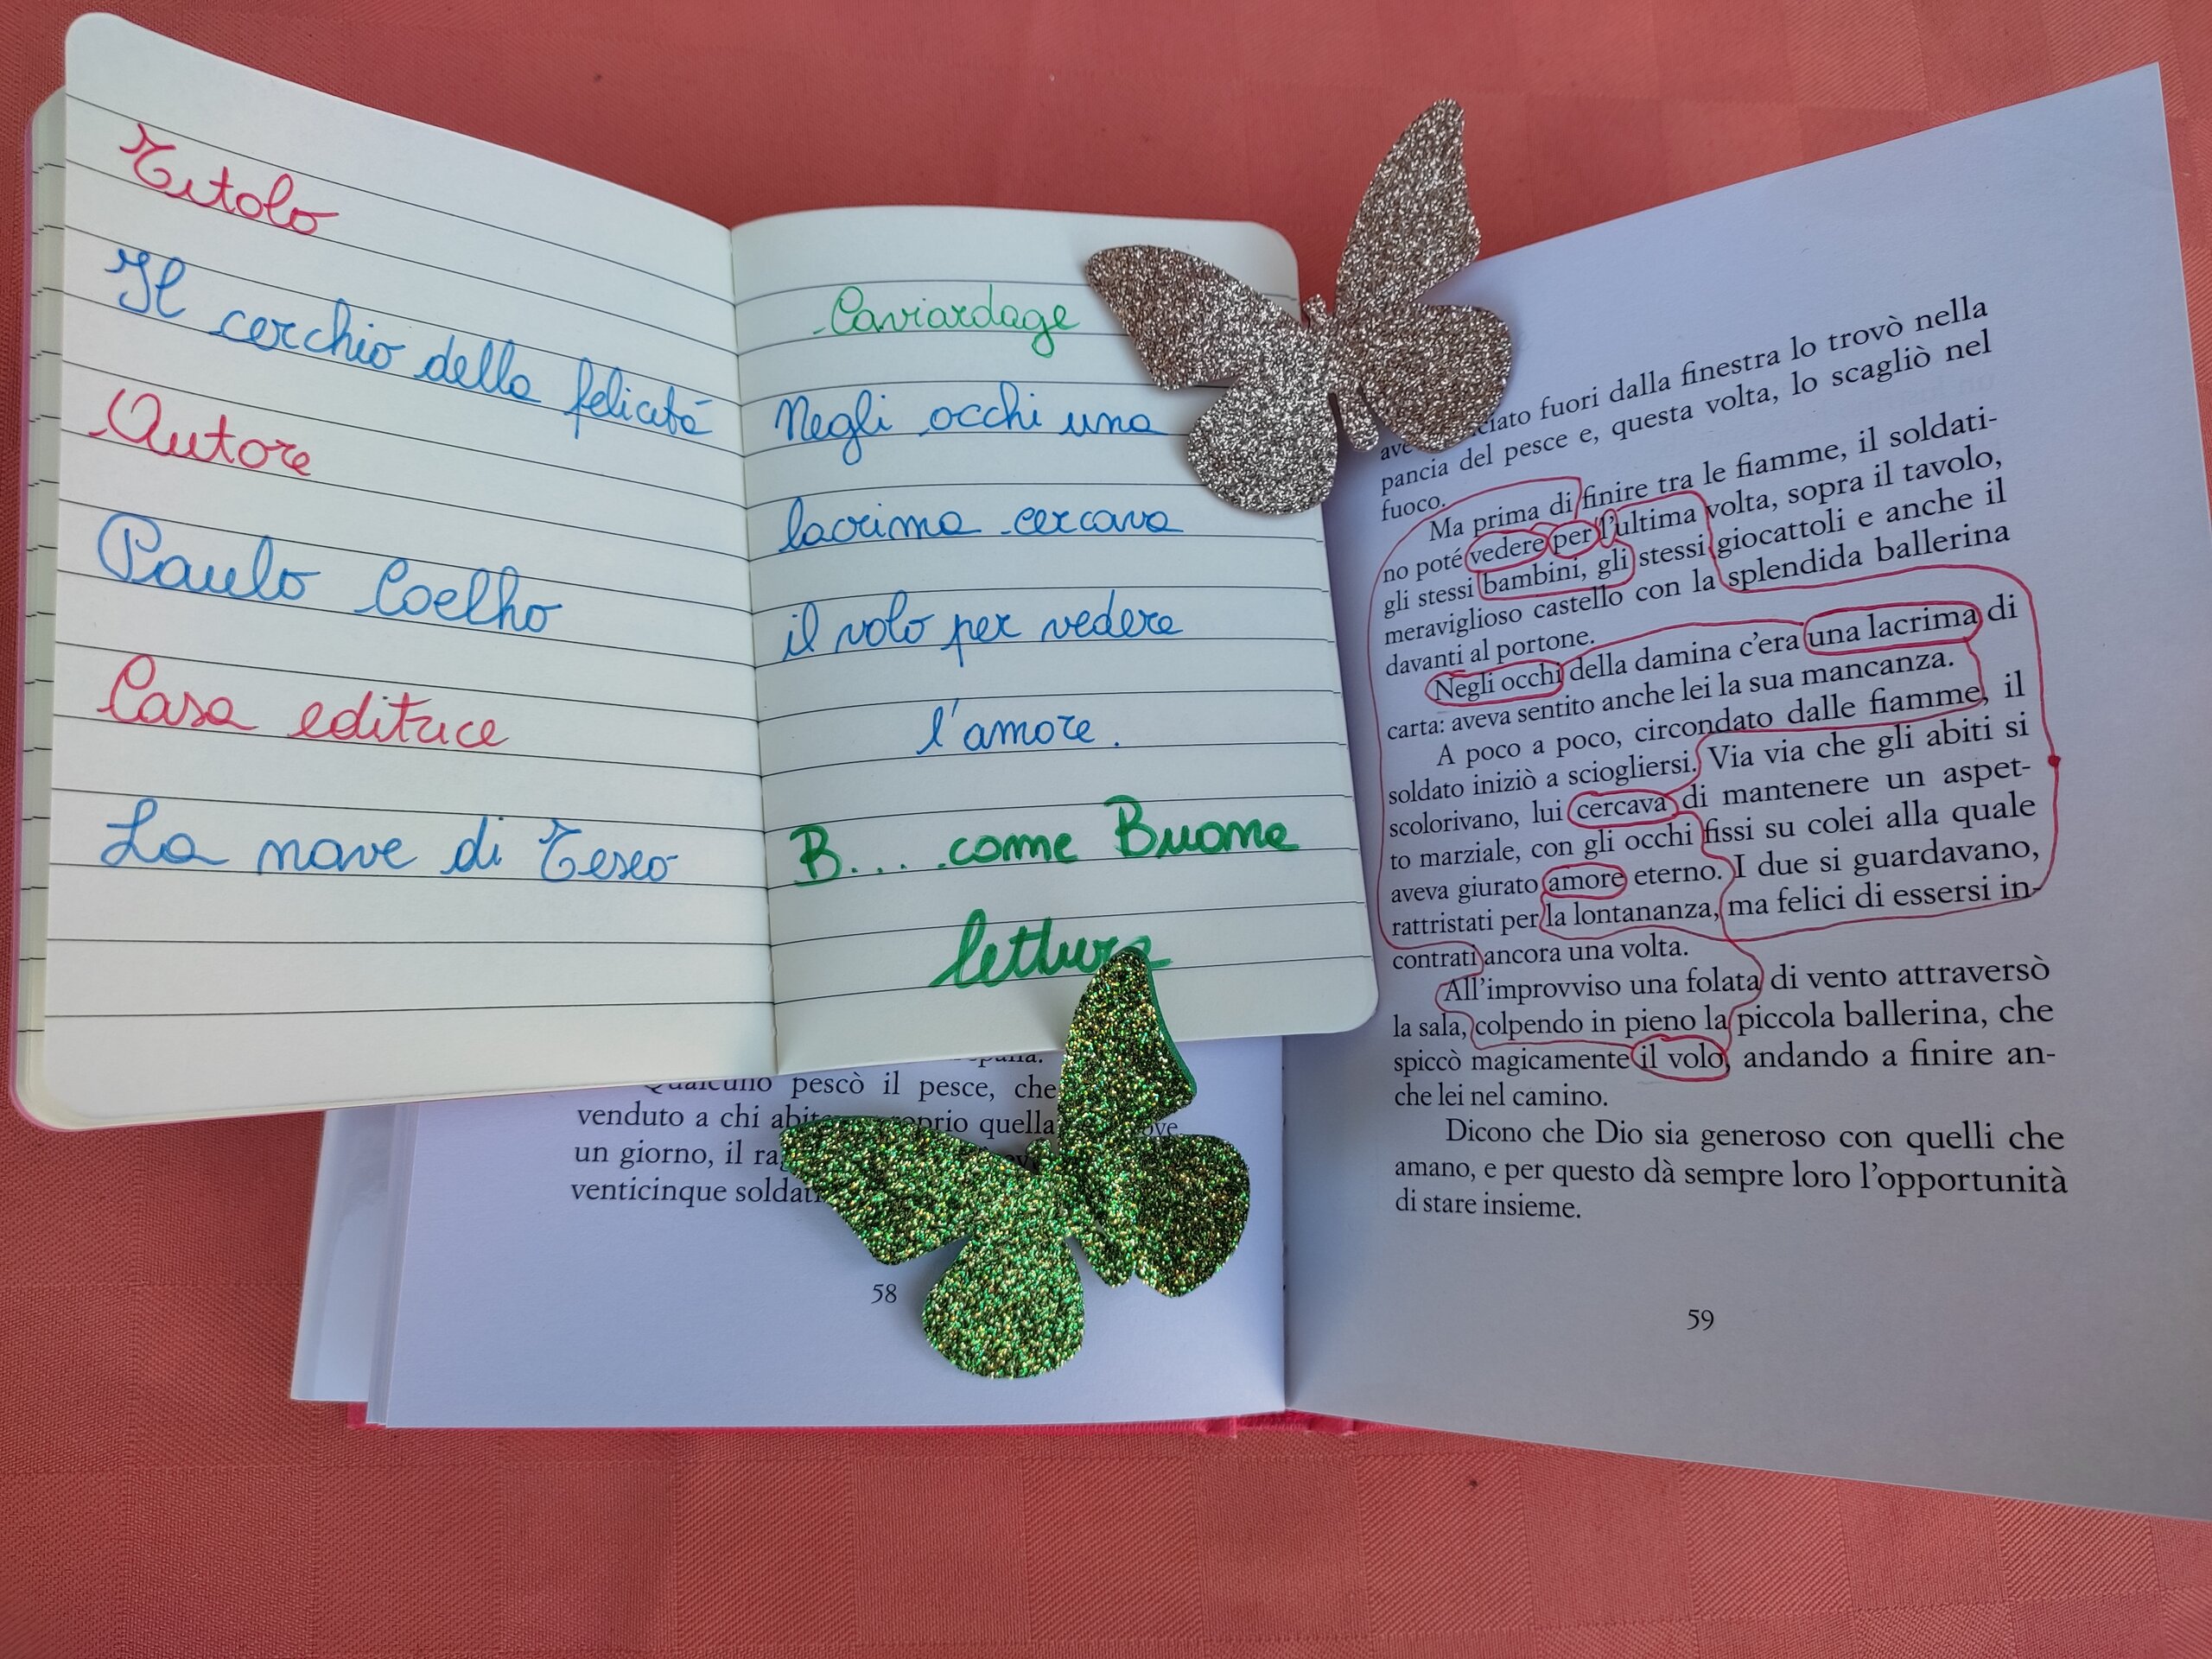 Titolo
Il cerchio della felicità
Autore
Paulo Coelho
Casa editrice
La nave di Teseo
Caviardage
Negli occhi una
lacrima cercava
il volo per vedere
l'amore.
B.... come Buona
lettura
Qualcuno pescò il pesce, che
venduto a chi quella
un giorno, il
venticinque
58
fuori dalla finestra lo trovò nella
pancia del pesce e, questa volta, lo scagliò nel
fuoco.
Ma prima di finire tra le fiamme, il soldati-
no poté vedere per l'ultima volta, sopra il tavolo,
gli stessi bambini, gli stessi giocattoli e anche il
meraviglioso castello con la splendida ballerina
davanti al portone.
Negli occhi della damina c'era una lacrima di
carta: aveva sentito anche lei la sua mancanza.
A poco a poco, circondato dalle fiamme, il
soldato iniziò a sciogliersi. Via via che gli abiti si
scolorivano, lui cercava di mantenere un aspet-
to marziale, con gli occhi fissi su colei alla quale
aveva giurato amore eterno. I due si guardavano,
rattristati per la lontananza, ma felici di essersi in-
contrati ancora una volta.
All'improvviso una folata di vento attraversò
la sala, colpendo in pieno la piccola ballerina, che
spiccò magicamente il volo, andando a finire an-
che lei nel camino.
Dicono che Dio sia generoso con quelli che
amano, e per questo dà sempre loro l'opportunità
di stare insieme.
59